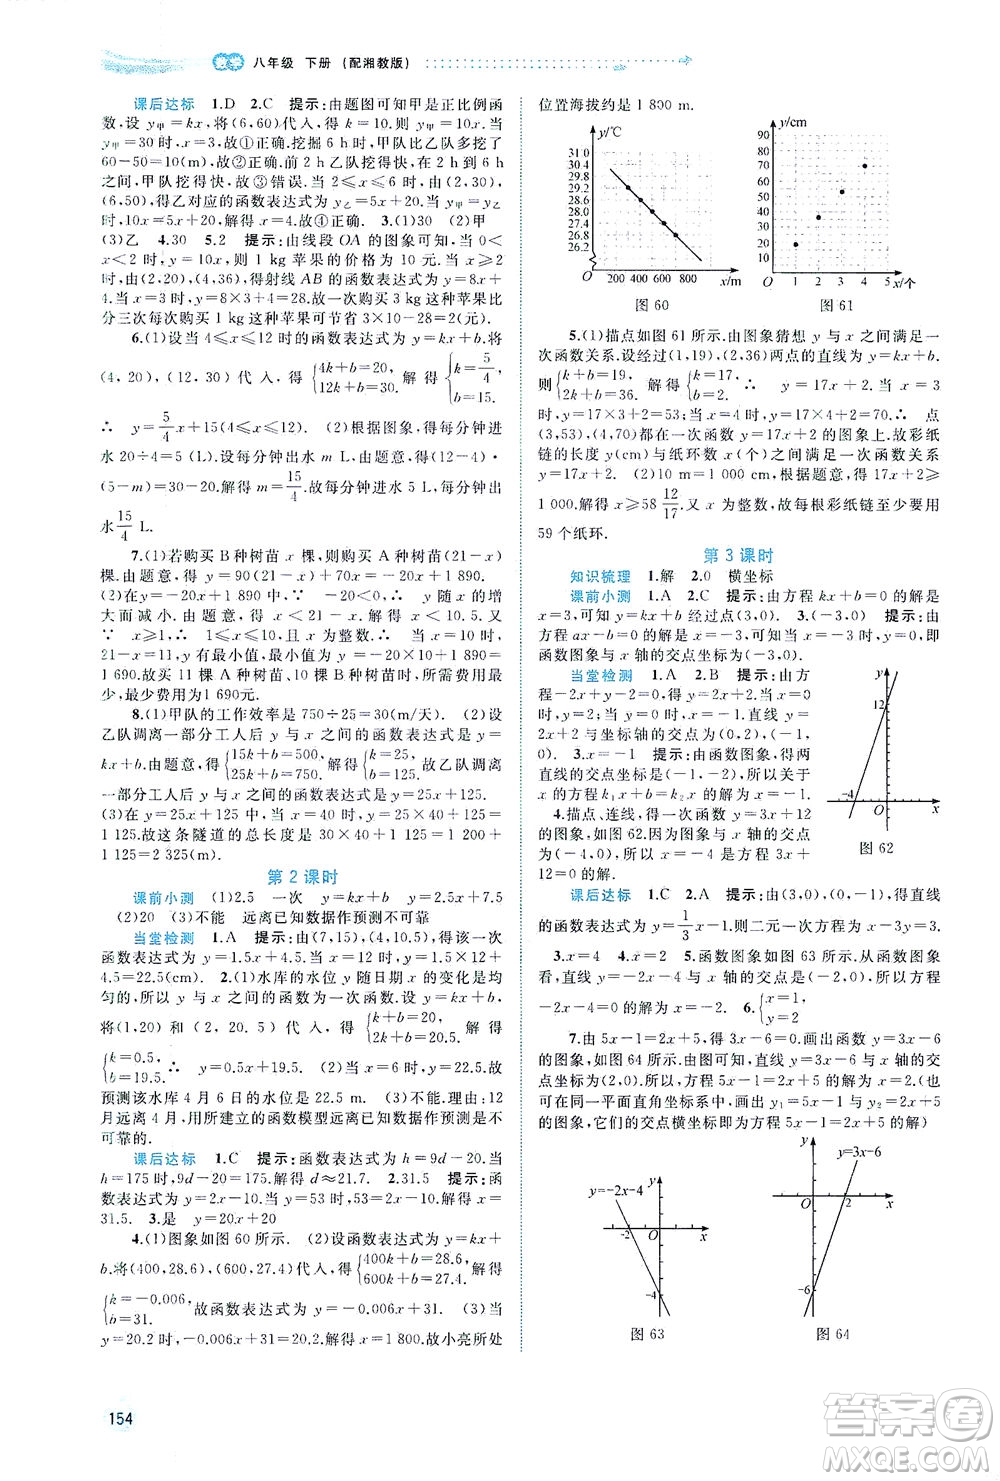 数学 八年级 下册 (配湘教版)
课后达标 1.D 2.C 提示:由题图可知甲是正比例函
数,设 y甲=kx,将(6,60)代入,得 k=10.所以 y甲=10x.当
y甲=30 时,x=3,故①正确.挖掘 6 h 时,甲队比乙队多挖了
60-50=10(m),故②正确.前 2 h 乙队挖得快,在 2 h 到 6 h
之间,甲队挖得快,故③错误.当 2≤x≤6 时,根据(2,30),
(6,50),得乙对应的函数表达式为 y乙=5x+20.当 y甲=y乙
时,10x=5x+20,解得 x=4.故④正确. 3.(1)30 (2)甲
(3)乙 4.30 5.2 提示:由线段 OA 的图象可知,当 0<
x<2 时,y=10x,则 1 kg 苹果的价格为 10 元.当 x≥2 时,
将(2,20),(4,36),得射线 AB 的函数表达式为 y=8x+4.
当 x=3 时,y=8×3+4=28.故一次购买 3 kg 这种苹果比
分三次每次购买 1 kg 这种苹果可节省 3×10-28=2(元).
6.(1)设当 4≤x≤12 时的函数表达式为 y=kx+b,将
(4,20),(12,30)代入,得 {4k+b=20, 12k+b=30. 解得 {k=5/4, b=15.
∴ y=5/4x+15(4≤x≤12). (2)根据图象,得每分钟进
水 20÷4=5 (L).设每分钟出水 m L,则 5×(12-4)-
(5-m)=20.解得 m=15/4.故每分钟进水 5 L,每分钟出
水 15/4 L.
7.(1)若购买 B 种树苗 x 棵,则购买 A 种树苗(21-x)
棵.由题意,得 y=90(21-x)+70x=-20x+1 890.
(2)∵ y=-20x+1 890,-20<0,∴ y 随 x 的增
大而减小.由题意,得 x<21-x,解得 x<10.5.又
∵ x≥1,且 x 为整数,∴ 当 x=10 时,
21-x=11,y 有最小值,最小值为-20×10+1 890=
1 690.故购买 11 棵 A 种树苗,10 棵 B 种树苗时,所需费用
最少,最少费用为 1 690 元.
8.(1)甲队的工作效率是 750÷25=30(m/天). (2)设
乙队调离一部分工人后 y 与 x 之间的函数表达式是 y=kx
+b.由题意,得 {15k+b=500, 25k+b=750. 解得 {k=25, b=125. 故乙队调离
一部分工人后 y 与 x 之间的函数表达式是 y=25x+125.
(3)由题意,得甲队 x 天完成的总量为 y=30x.乙队调离
一部分工人后,当 x=40 时,y=25×40+125=
1 125.故这条隧道的总长度是 30×40+1 125=1 200+
1 125=2 325(m).
第 2 课时
课前小测 (1)2.5 一次 y=kx+b y=2.5x+7.5
(2)20 (3)不能 远离已知数据作预测不可靠
当堂检测 1.A 提示:由(7,15),(4,10.5),得该一次
函数表达式为 y=1.5x+4.5,当 x=12 时,y=1.5×12
+4.5=22.5(cm). 2.(1)水库的水位 y 随日期 x 的变化是均
匀的,所以 y 与 x 之间的函数关系是一次函数.设 y=kx+b,
将(1,20)和(2,20.5)代入,得 {k+b=20, 2k+b=20.5. 解得
{k=0.5, b=19.5. ∴ y=0.5x+19.5. (2)当 x=6 时,y=22.5.故
预测该水库 4 月 6 日的水位是 22.5 m. (3)不能.理由:12
月远离 4 月,所建立的函数模型远离已知数据作预测是不
可靠的.
课后达标 1.C 提示:函数表达式为 h=9d-20,当
h=175 时,9d-20=175,解得 d≈21.7. 2.31.5 提示:
函数表达式为 y=0.5x+5,当 y=53 时,x=
31.5. 3.是 y=0.7x+20
4.(1)图象如图 60 所示. (2)设函数表达式为 y=kx+
b.将(400,28.6),(600,27.4)代入,得 {400k+b=28.6, 600k+b=27.4. 解得
{k=-0.006, b=31. 故函数表达式为 y=-0.006x+31. (3)当
y=20.2 时,-0.006x+31=20.2,解得 x=1 800.故小亮所处
位置海拔约是 1 800 m.
y/℃
31.0
30.4
29.8
29.2
28.6
28.0
27.4
26.8
26.2
O 200 400 600 800 x/m
图 60
y/cm
90
80
70
60
50
40
30
20
10
O 1 2 3 4 5 x/个
图 61
5.(1)描点如图 61 所示.由图象猜想 y 与 x 之间满足一
次函数关系.设经过(1,19),(2,36)两点的直线为 y=kx+b,
则 {k+b=19, 2k+b=36. 解得 {k=17, b=2. ∴ y=17x+2.当 x=3
时,y=17×3+2=53;当 x=4 时,y=17×4+2=70.∴ 点
(3,53),(4,70)都在一次函数 y=17x+2 的图象上.故彩纸
链的长度 y(cm)与纸环数 x(个)之间满足一次函数关系
y=17x+2. (2)10 m=1 000 cm,根据题意,得 17x+2≥
1 000.解得 x≥58 12/17.又 x 为整数,故每根彩纸链至少要用
59 个纸环.
第 3 课时
知识梳理 1.解 2.0 横坐标
课前小测 1.A 2.C 提示:由方程 kx+b=0 的解是
x=3,可知 y=kx+b 经过点(3,0). 3.(-3,0) 提示:由
方程 ax-b=0 的解是 x=-3,可知当 x=-3 时,y=0,即
函数图象与 x 轴的交点坐标为(-3,0).
当堂检测 1.A 2.B 提示:由方
程-2x+2=0,得 x=1,故直线 y=-
2x+2 与坐标轴的交点为(0,2),(1,
0). 3.x=-1 提示:由函数图象,得两
直线的交点坐标是(-1,-2),所以关于
x 的方程 k₁x+b=k₂x 的解为 x=-1.
4.描点、连线,得一次函数 y=3x+12
的图象如图 62.因为图象与 x 轴的交点
坐标是(-4,0),所以 x=-4 是方程 3x
+12=0 的解.
12
y
-4 O x
图 62
课后达标 1.C 2.A 提示:由(3,0),(0,-1),得直线
的函数表达式为 y=1/3x-1,则二元一次方程为 x-3y=3.
3.x=4 4.x=2 5.函数图象如图 63 所示.从函数图象
看,直线 y=-2x-4 与 x 轴的交点是(-2,0),所以方程
-2x-4=0 的解为 x=-2. 6.{x=1, y=2
7.由 5x-1=2x+5,得 3x-6=0.画出函数 y=3x-6
的图象,如图 64 所示.由图可知,直线 y=3x-6 与 x 轴的交
点为(2,0),所以方程 5x-1=2x+5 的解为 x=2.(也
可在同一平面直角坐标系中,画出 y₁=5x-1 与 y₂=2x+5
的图象,它们的交点横坐标即为方程 5x-1=2x+5 的解)
y=-2x-4
y
-2 O x
-4
图 63
y
y=3x-6
O 2 x
-6
图 64
154
答案圈
MXQE.COM